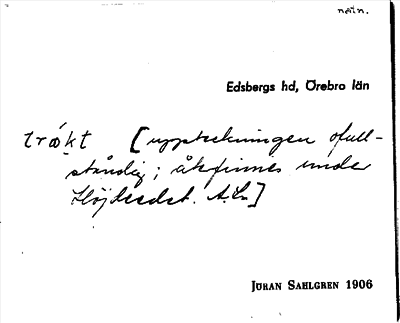 närn.
Edsbergs hd, Örebro län
tråkt [uppteckningen ofull-
ständig; återfinnes under
A.L.]
JÖRAN SAHLGREN 1906